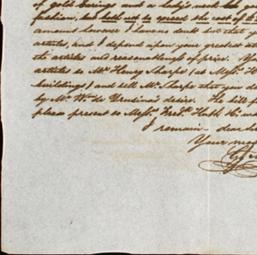 of gold Earings and a lady's neck
fashion, but both not to exceed the cost of
amount however I have no doubt but that
articles, and I depend upon your greatest
the articles and reasonableness of price. You
articles to Mr. Henry Sharpe (at Messrs. H
buildings) and tell Mr. Sharpe that you
by Mr. W. de desire. The bill
please present to Messrs. Fredk. Huth & Co.
I remain dear
Your